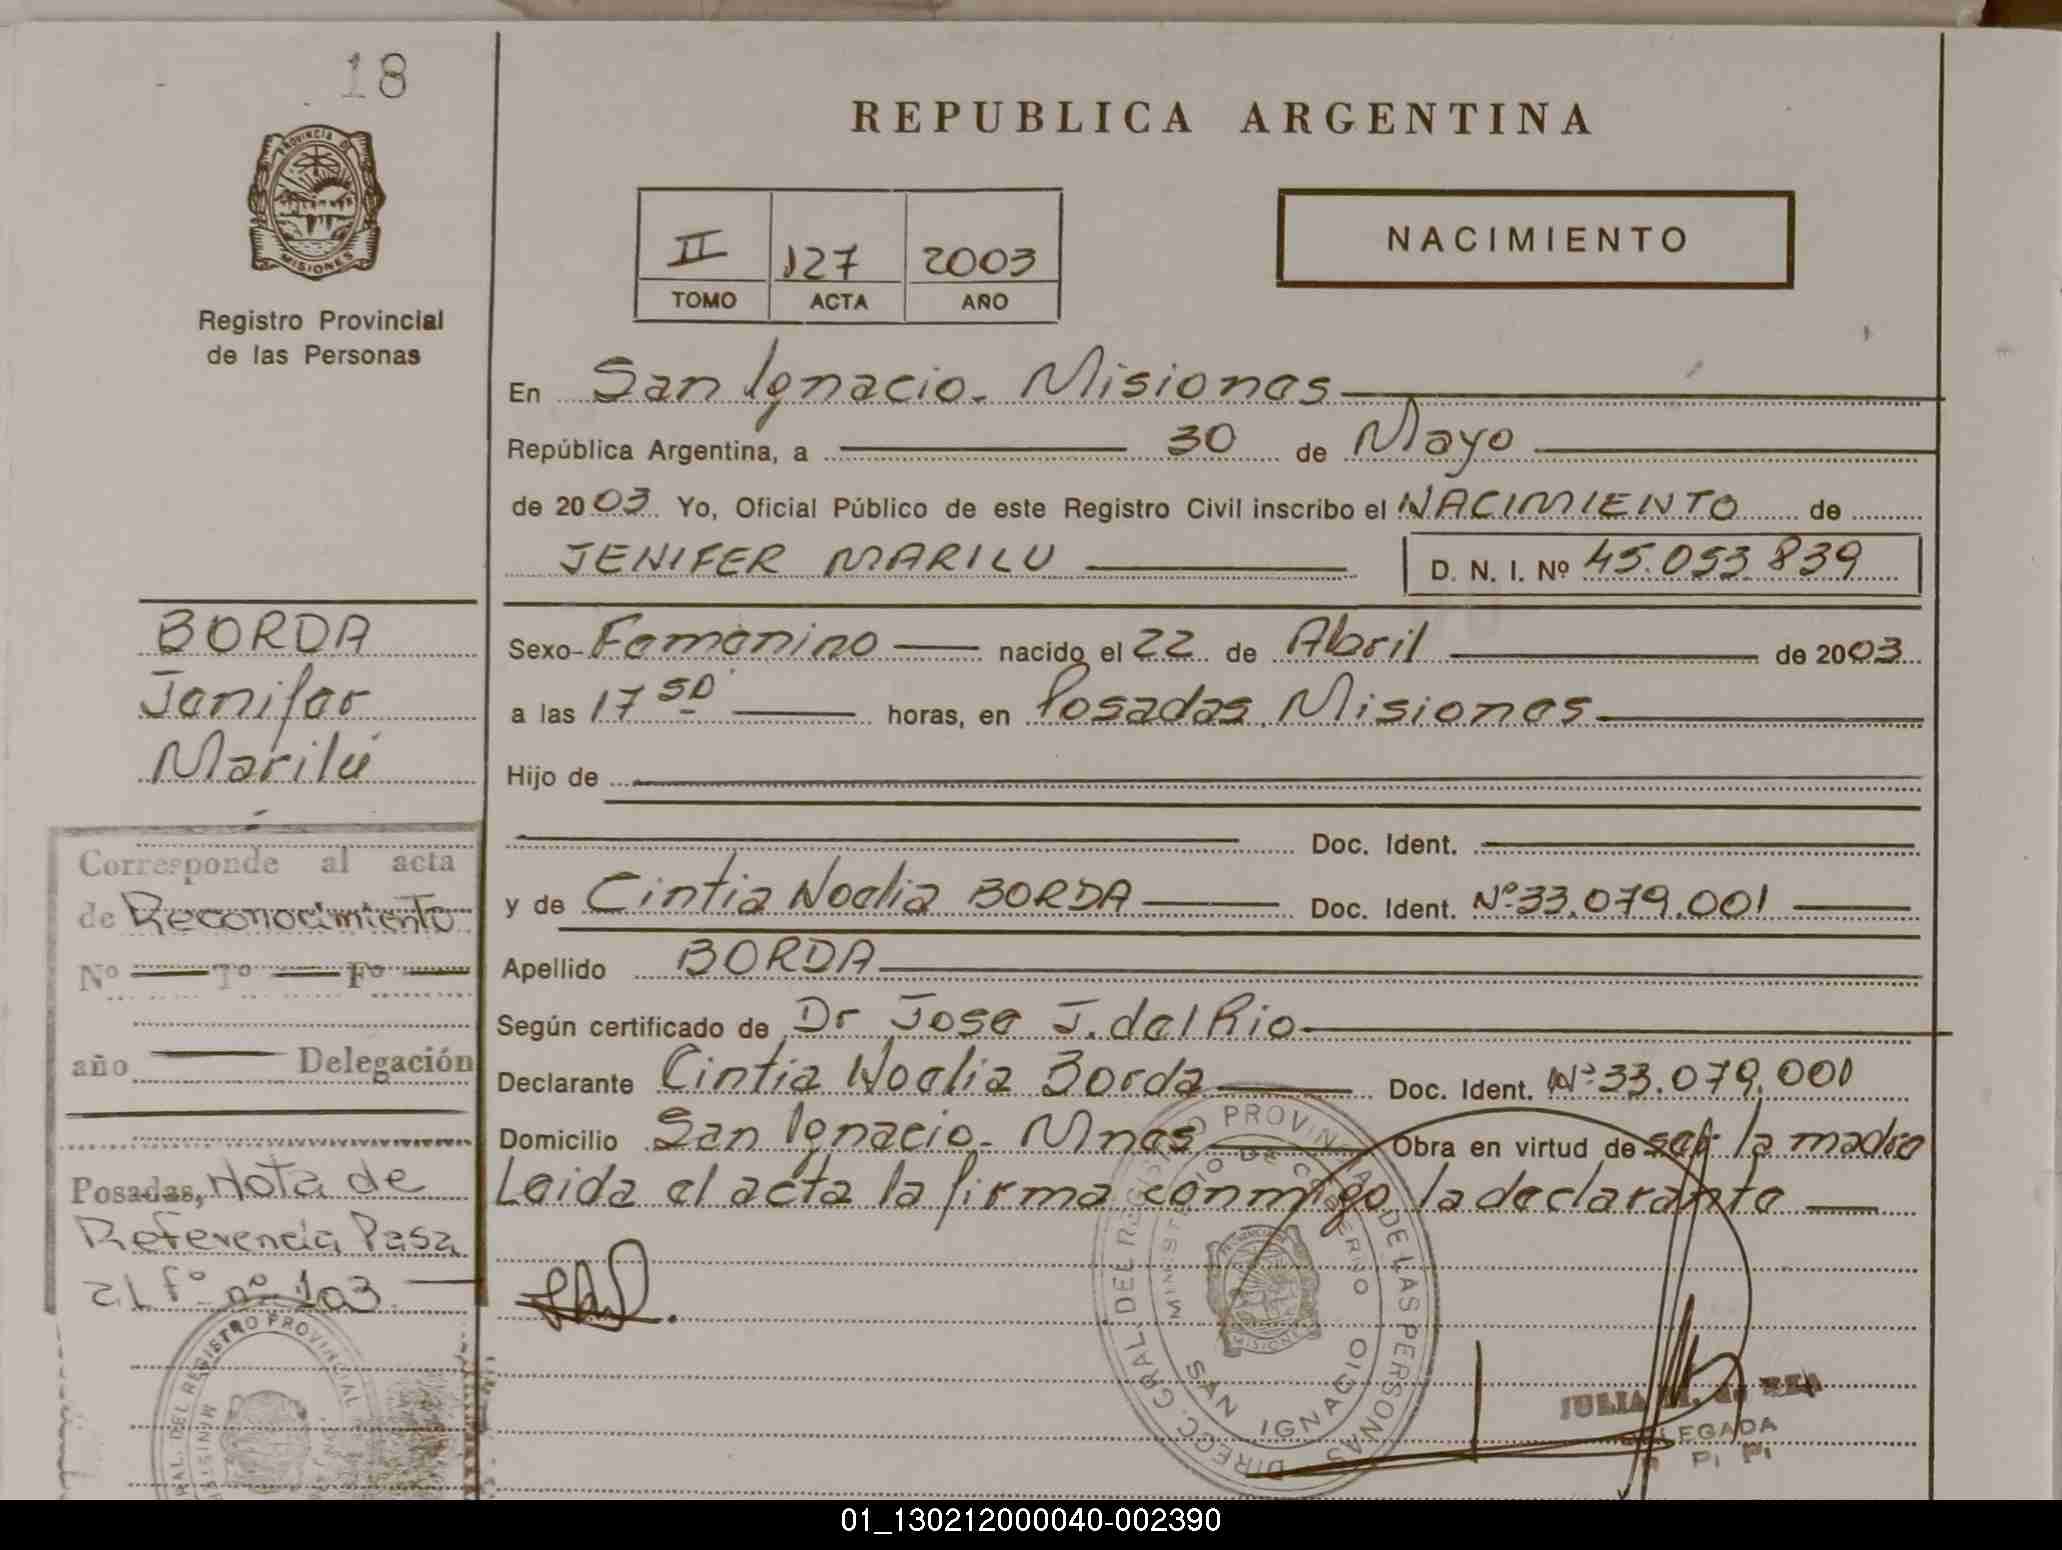 18
PROVINCIA DE
MISIONES
Registro Provincial
de las Personas
BORDA
Jenifer
Marilú
Corresponde al acta
de Reconocimiento
Nº — Tº — Fº —
año — Delegación
Posadas, Nota de
Referencia Pasa
al fº nº 103 —
REPUBLICA ARGENTINA
II 127 2003
TOMO ACTA AÑO
NACIMIENTO
En San Ignacio - Misiones
República Argentina, a — 30 de Mayo
de 2003 Yo, Oficial Público de este Registro Civil inscribo el NACIMIENTO de
JENIFER MARILU — D. N. I. Nº 45.053.839
Sexo- Femenino — nacido el 22 de Abril — de 2003
a las 17 50 — horas, en Posadas, Misiones
Hijo de
Doc. Ident.
y de Cintia Noelia BORDA — Doc. Ident. Nº 33.079.001
Apellido BORDA
Según certificado de Dr Jose J. del Rio
Declarante Cintia Noelia Borda — Doc. Ident. Nº 33.079.001
Domicilio San Ignacio - Mnes — Obra en virtud de ser la madre
Leida el acta la firma conmigo la declarante —
DIRECC. GRAL. DEL REGISTRO PROVINCIAL DE LAS PERSONAS
MINISTERIO DE GOBIERNO
SAN IGNACIO
MISIONES
DEL REGISTRO PROVINCIAL
JULIA
DELEGADA
01_130212000040-002390